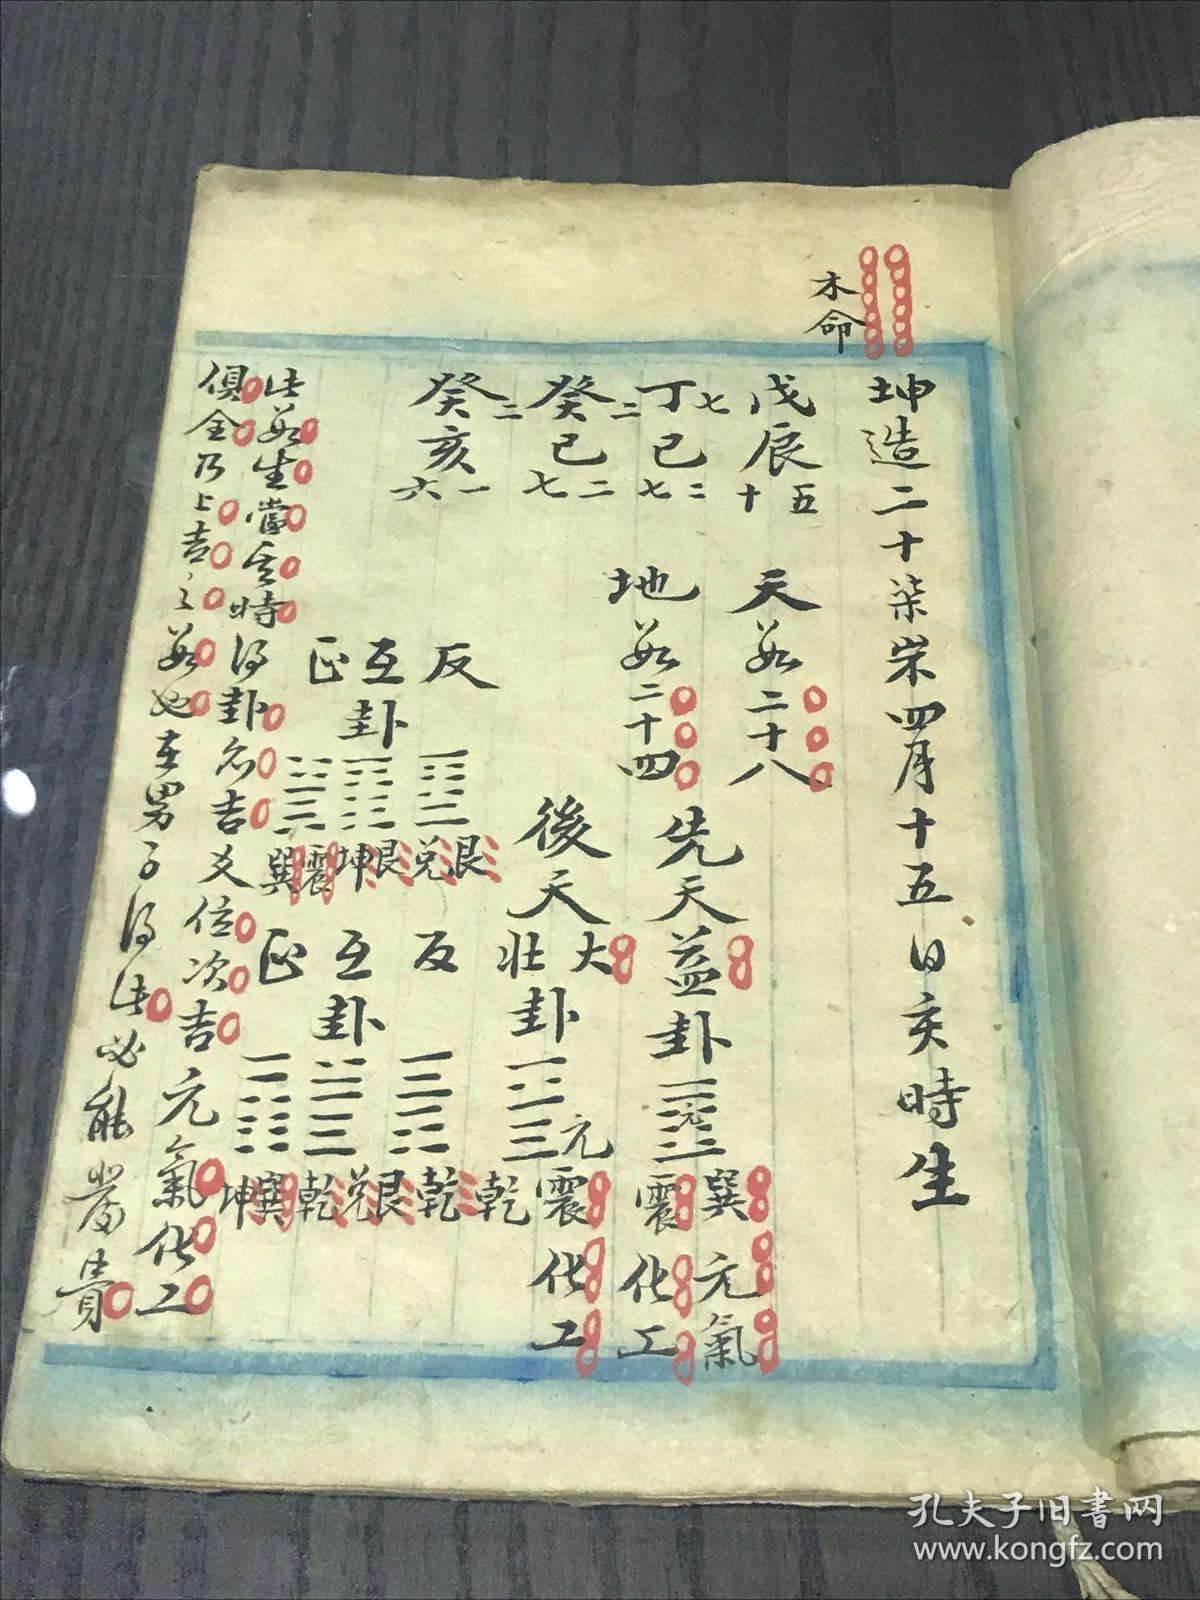 木命
坤造二十柒岽四月十五日亥時生
戊辰
十五
丁七巳
七二
癸二巳
七二
癸二亥
六一
天數二十八
地數二十四
先天益卦 元 巽震
元氣
化工
後天大壯卦 元 震乾
化工
反 艮兌
互卦 艮坤
正 震巽
反 乾艮
互卦 兌乾
正 巽坤
此數生當其時得卦名吉爻位次吉元氣化工
俱全乃上吉之數也在男子得此必能發貴
孔夫子旧书网
www.kongfz.com